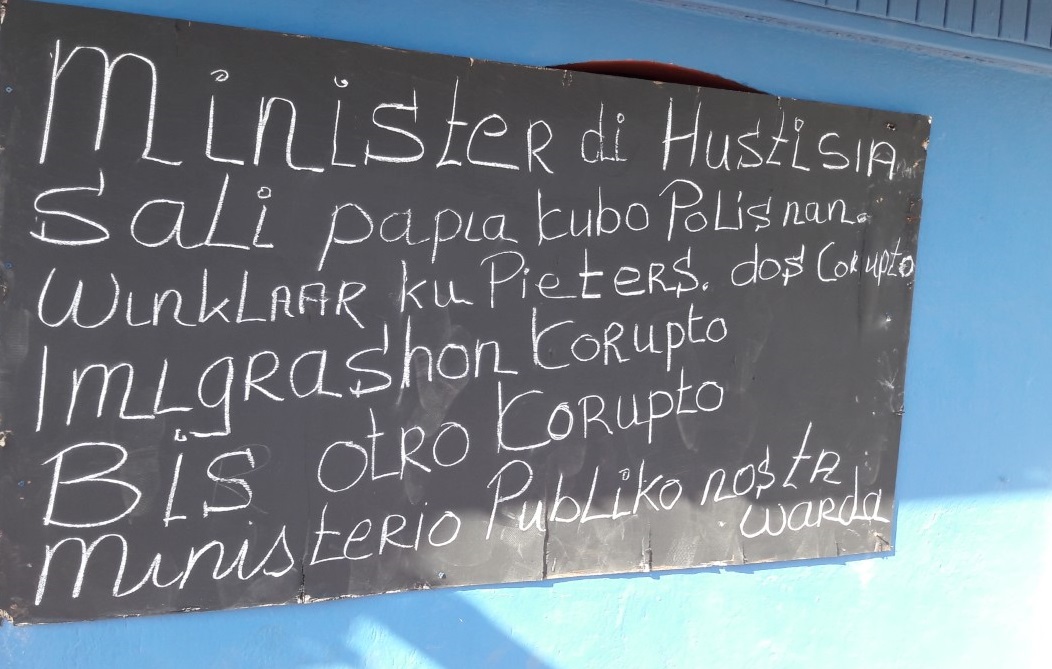 Minister di Hustisia
Sali papia kubo Polisnan.
Winklaar ku Pieters. dos Corupto
Imigrashon Korupto
Bis otro Korupto
Ministerio Publiko nos tr
warda